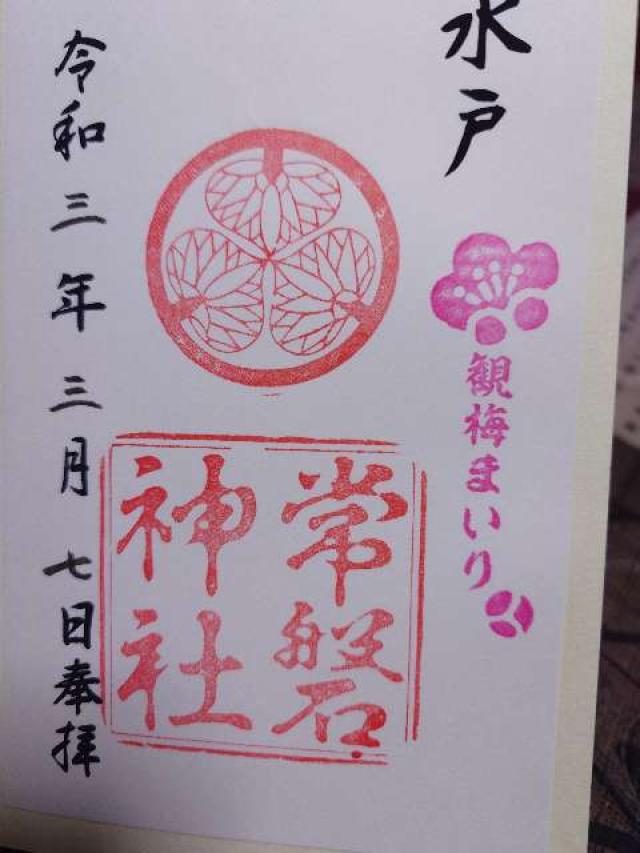 水戸
観梅まいり
常磐
神社
令和三年三月七日奉拝